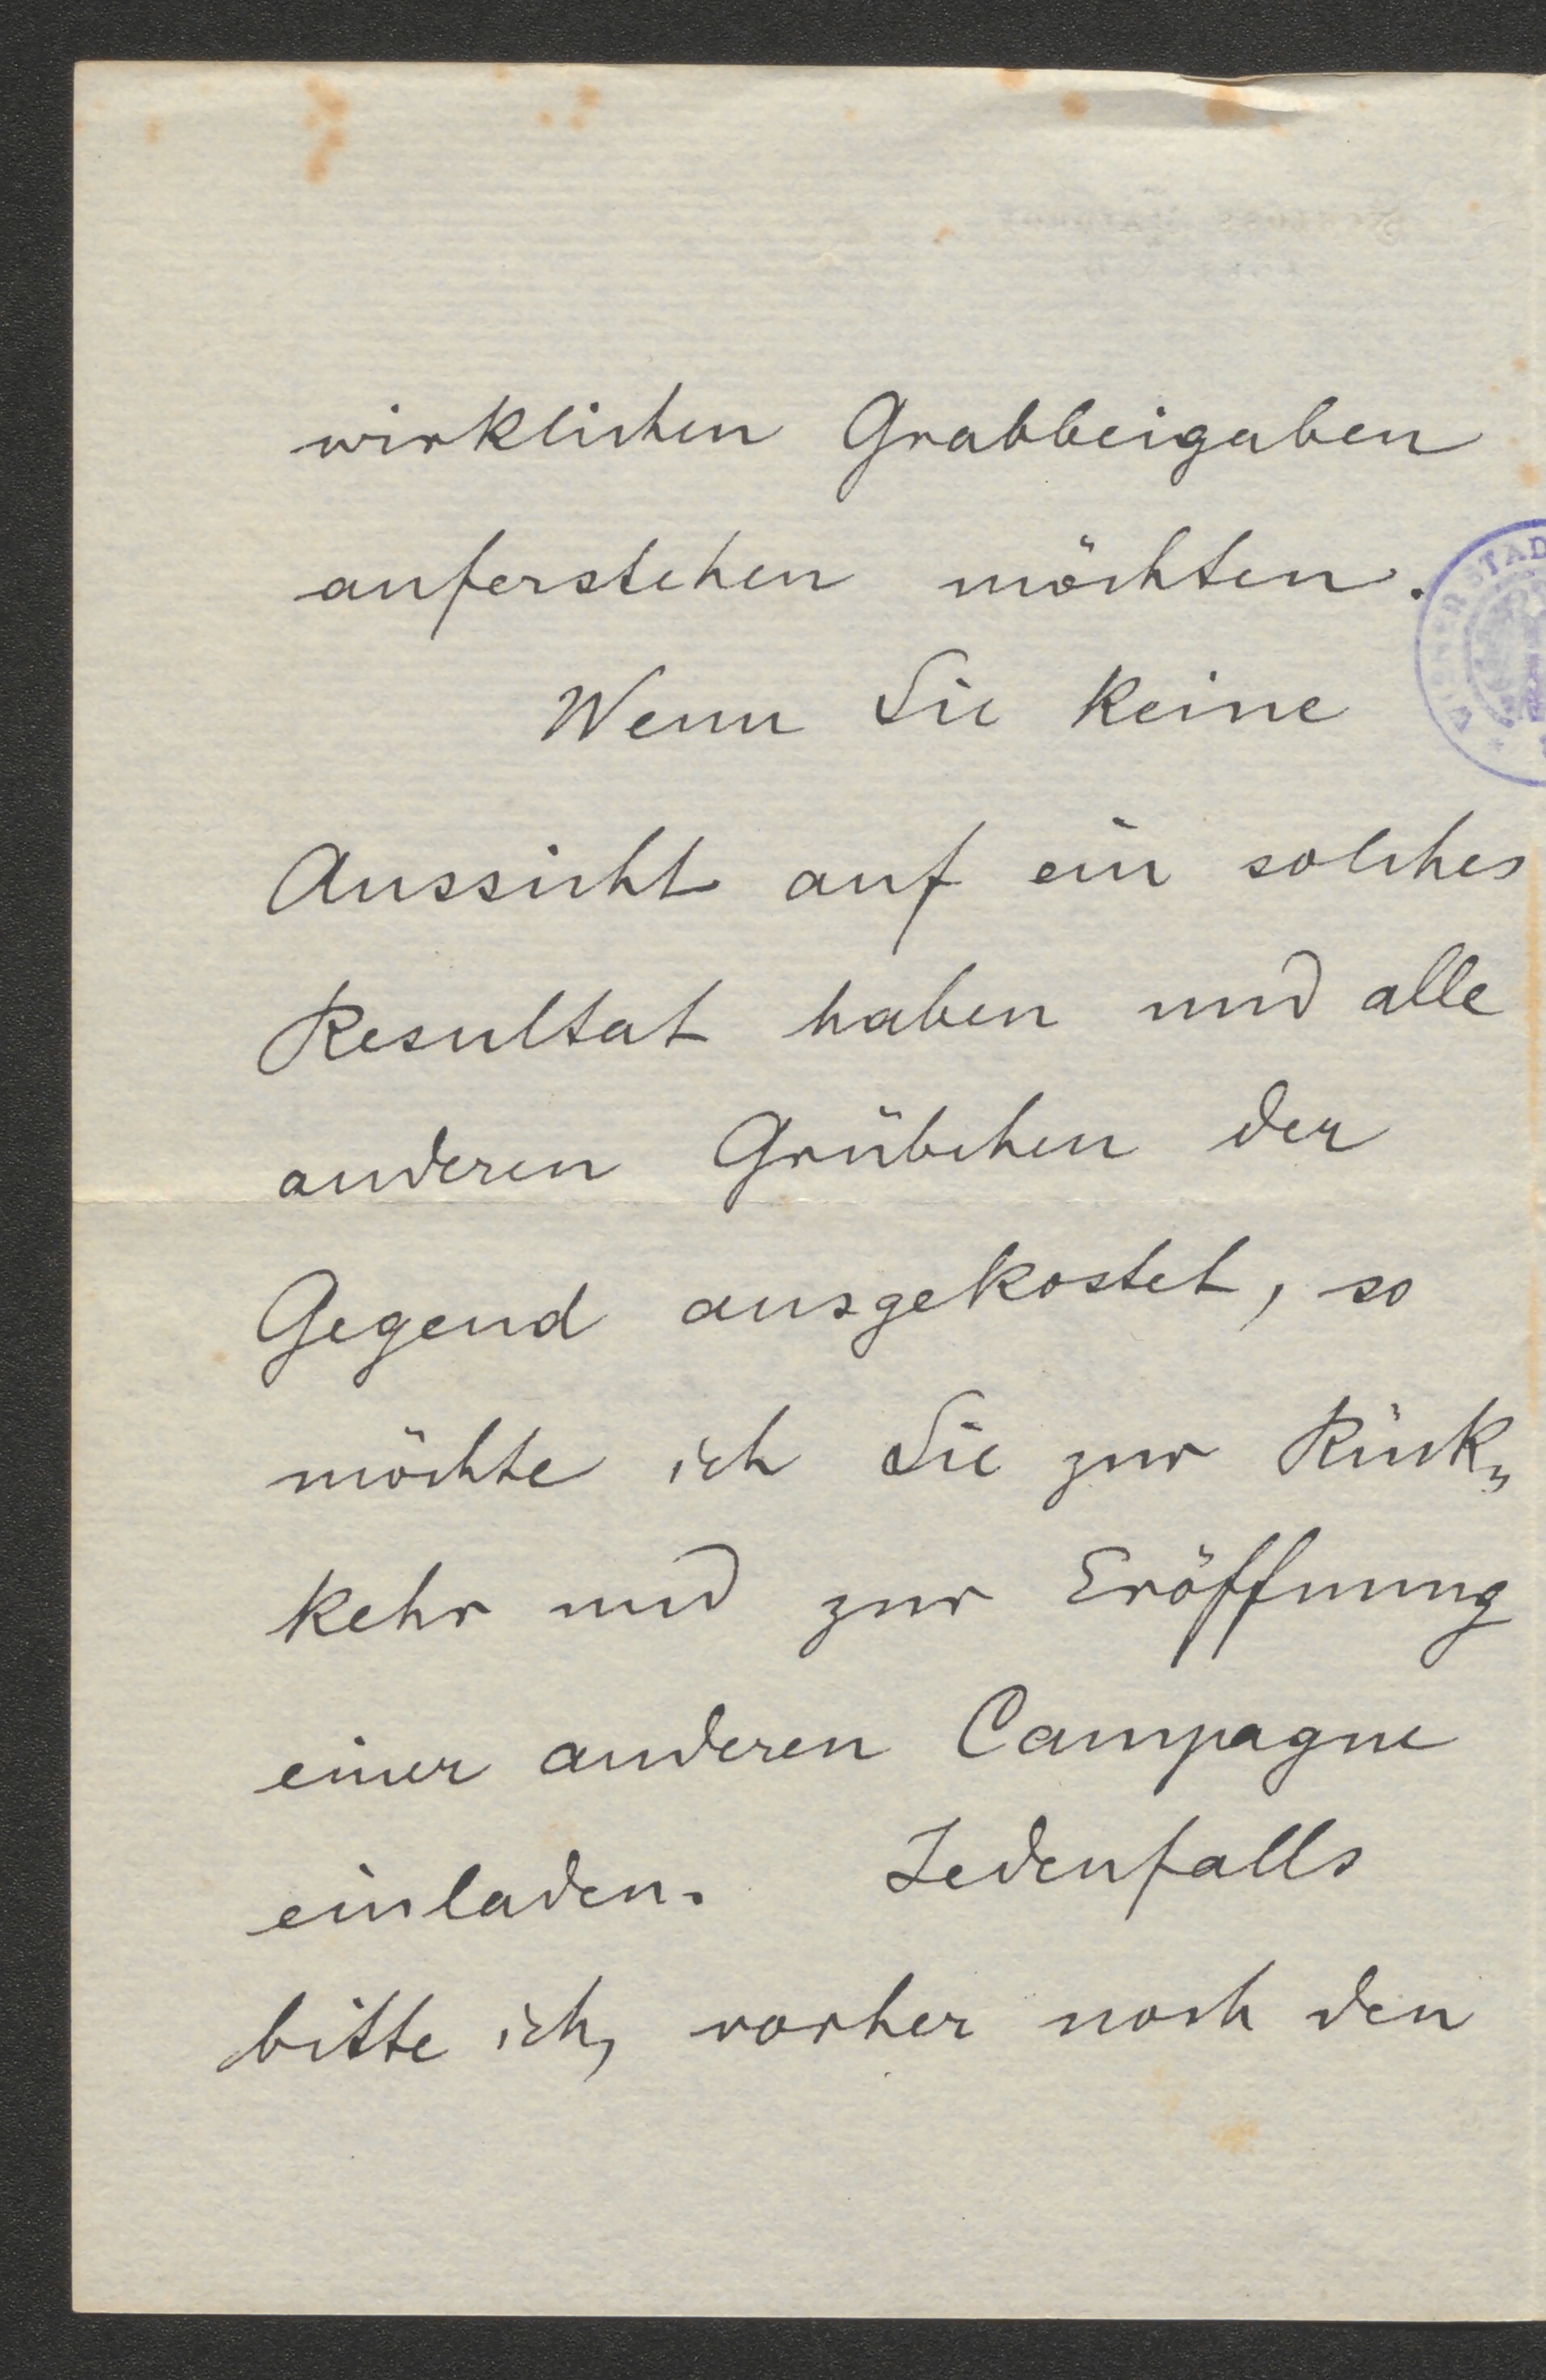 wirklichen Grabbeigaben
auferstehen möchten.
Wenn Sie keine
Aussicht auf ein solches
Resultat haben und alle
anderen Grübchen der
Gegend ausgekostet, so
möchte ich Sie zur Rück„
kehr und zur Eröffnung
einer anderen Campagne
einladen. Jedenfalls
bitte ich, vorher noch den
WIENER STAD